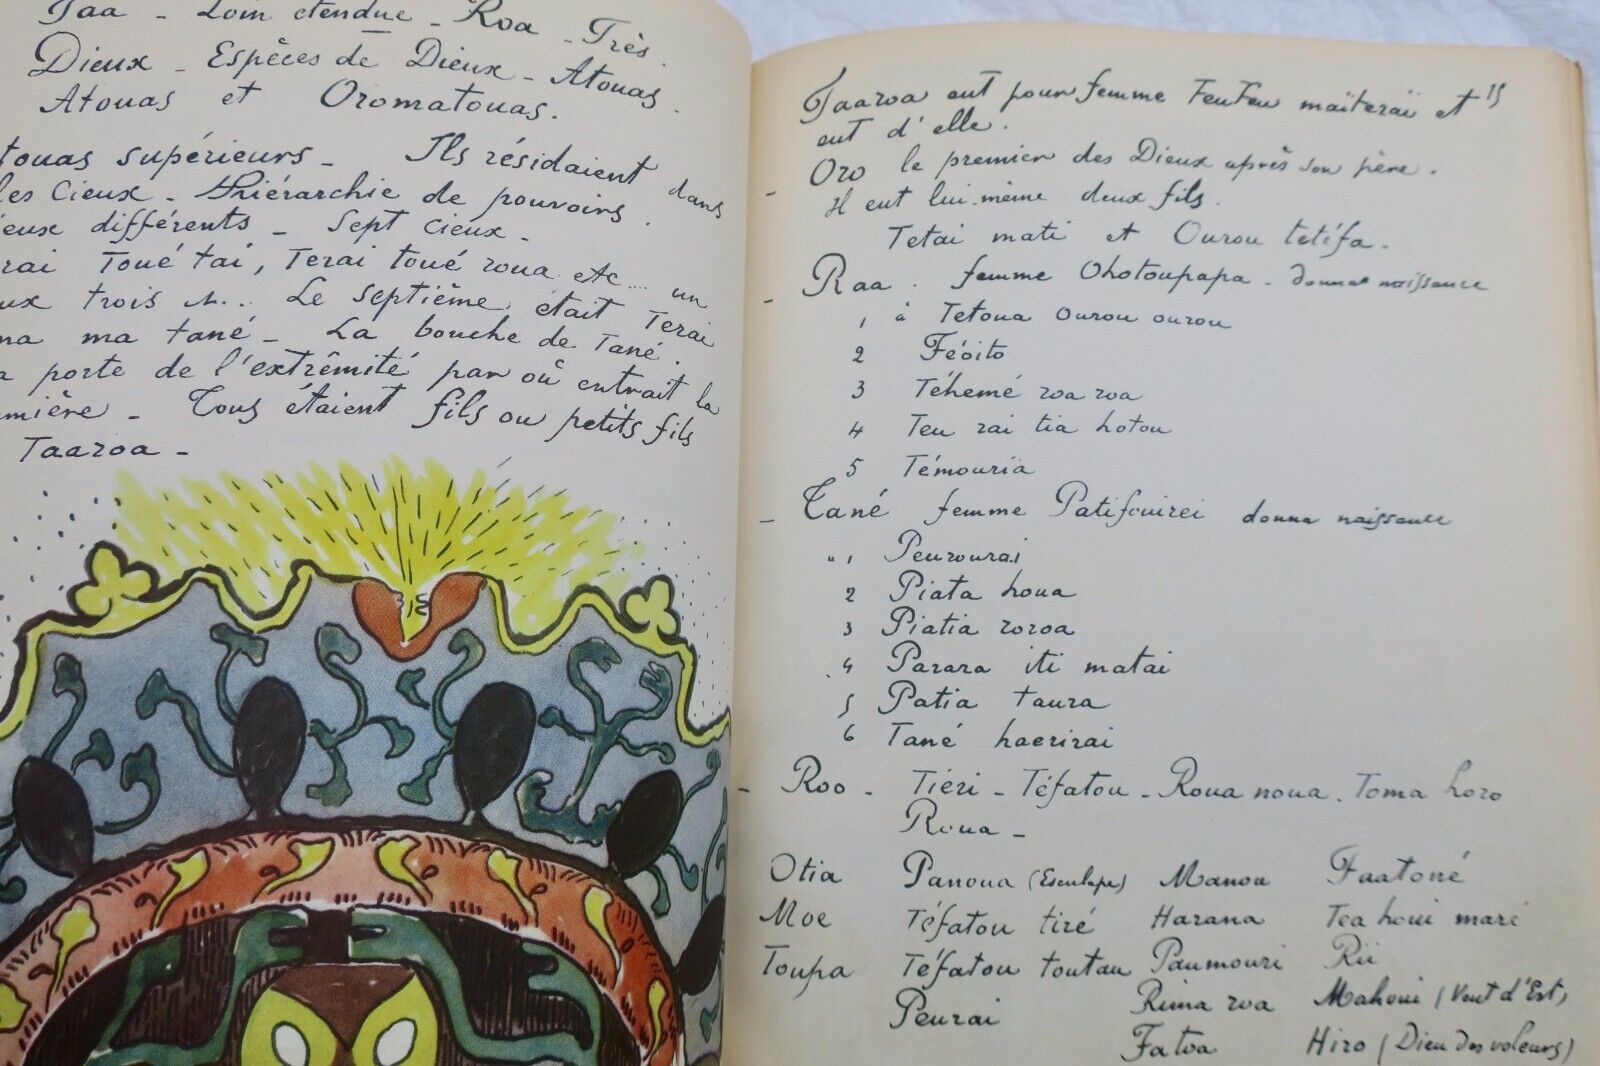 Taa - Loin étendue - Roa - Très.
Dieux - Espèces de Dieux - Atouas.
Atouas et Oromatouas.
touas supérieurs - Ils résidaient dans
les cieux - Hiérarchie de pouvoirs.
ieux différents - Sept cieux -
rai Toué tai, Terai toué roua etc... un
ux trois ... Le septième était Terai
ma ma tané - La bouche de Tané.
a porte de l'extrêmité par où entrait la
umière - Tous étaient fils ou petits fils
Taaroa -
15
Taaroa eut pour femme Feufeu maïteraï et
eut d'elle.
- Oro le premier des Dieux après son père.
Il eut lui même deux fils.
Tetai mati et Ourou tetéfa -
- Raa. femme Ohotoupapa - donna naissance
1 à Tetoua ourou ourou
2 Féoito
3 Téhemé roa roa
4 Teu rai tia hotou
5 Témouria
- Tané femme Patifouirei donna naissance
" 1 Peurourai
2 Piata houa
3 Piatia roroa
4 Parara iti matai
5 Patia taura
6 Tané haerirai
- Roo - Tiéri - Téfatou - Roua noua - Toma horo
Roua -
Otia Panoua (Esculape) Manou Faatoné
Moe Téfatou tiré Harana Tea houi maré
Toupa Téfatou toutau Paumouri Rii
Peurai Rima roa Mahoui (Vent d'Est,
Fatoa Hiro (Dieu des voleurs)